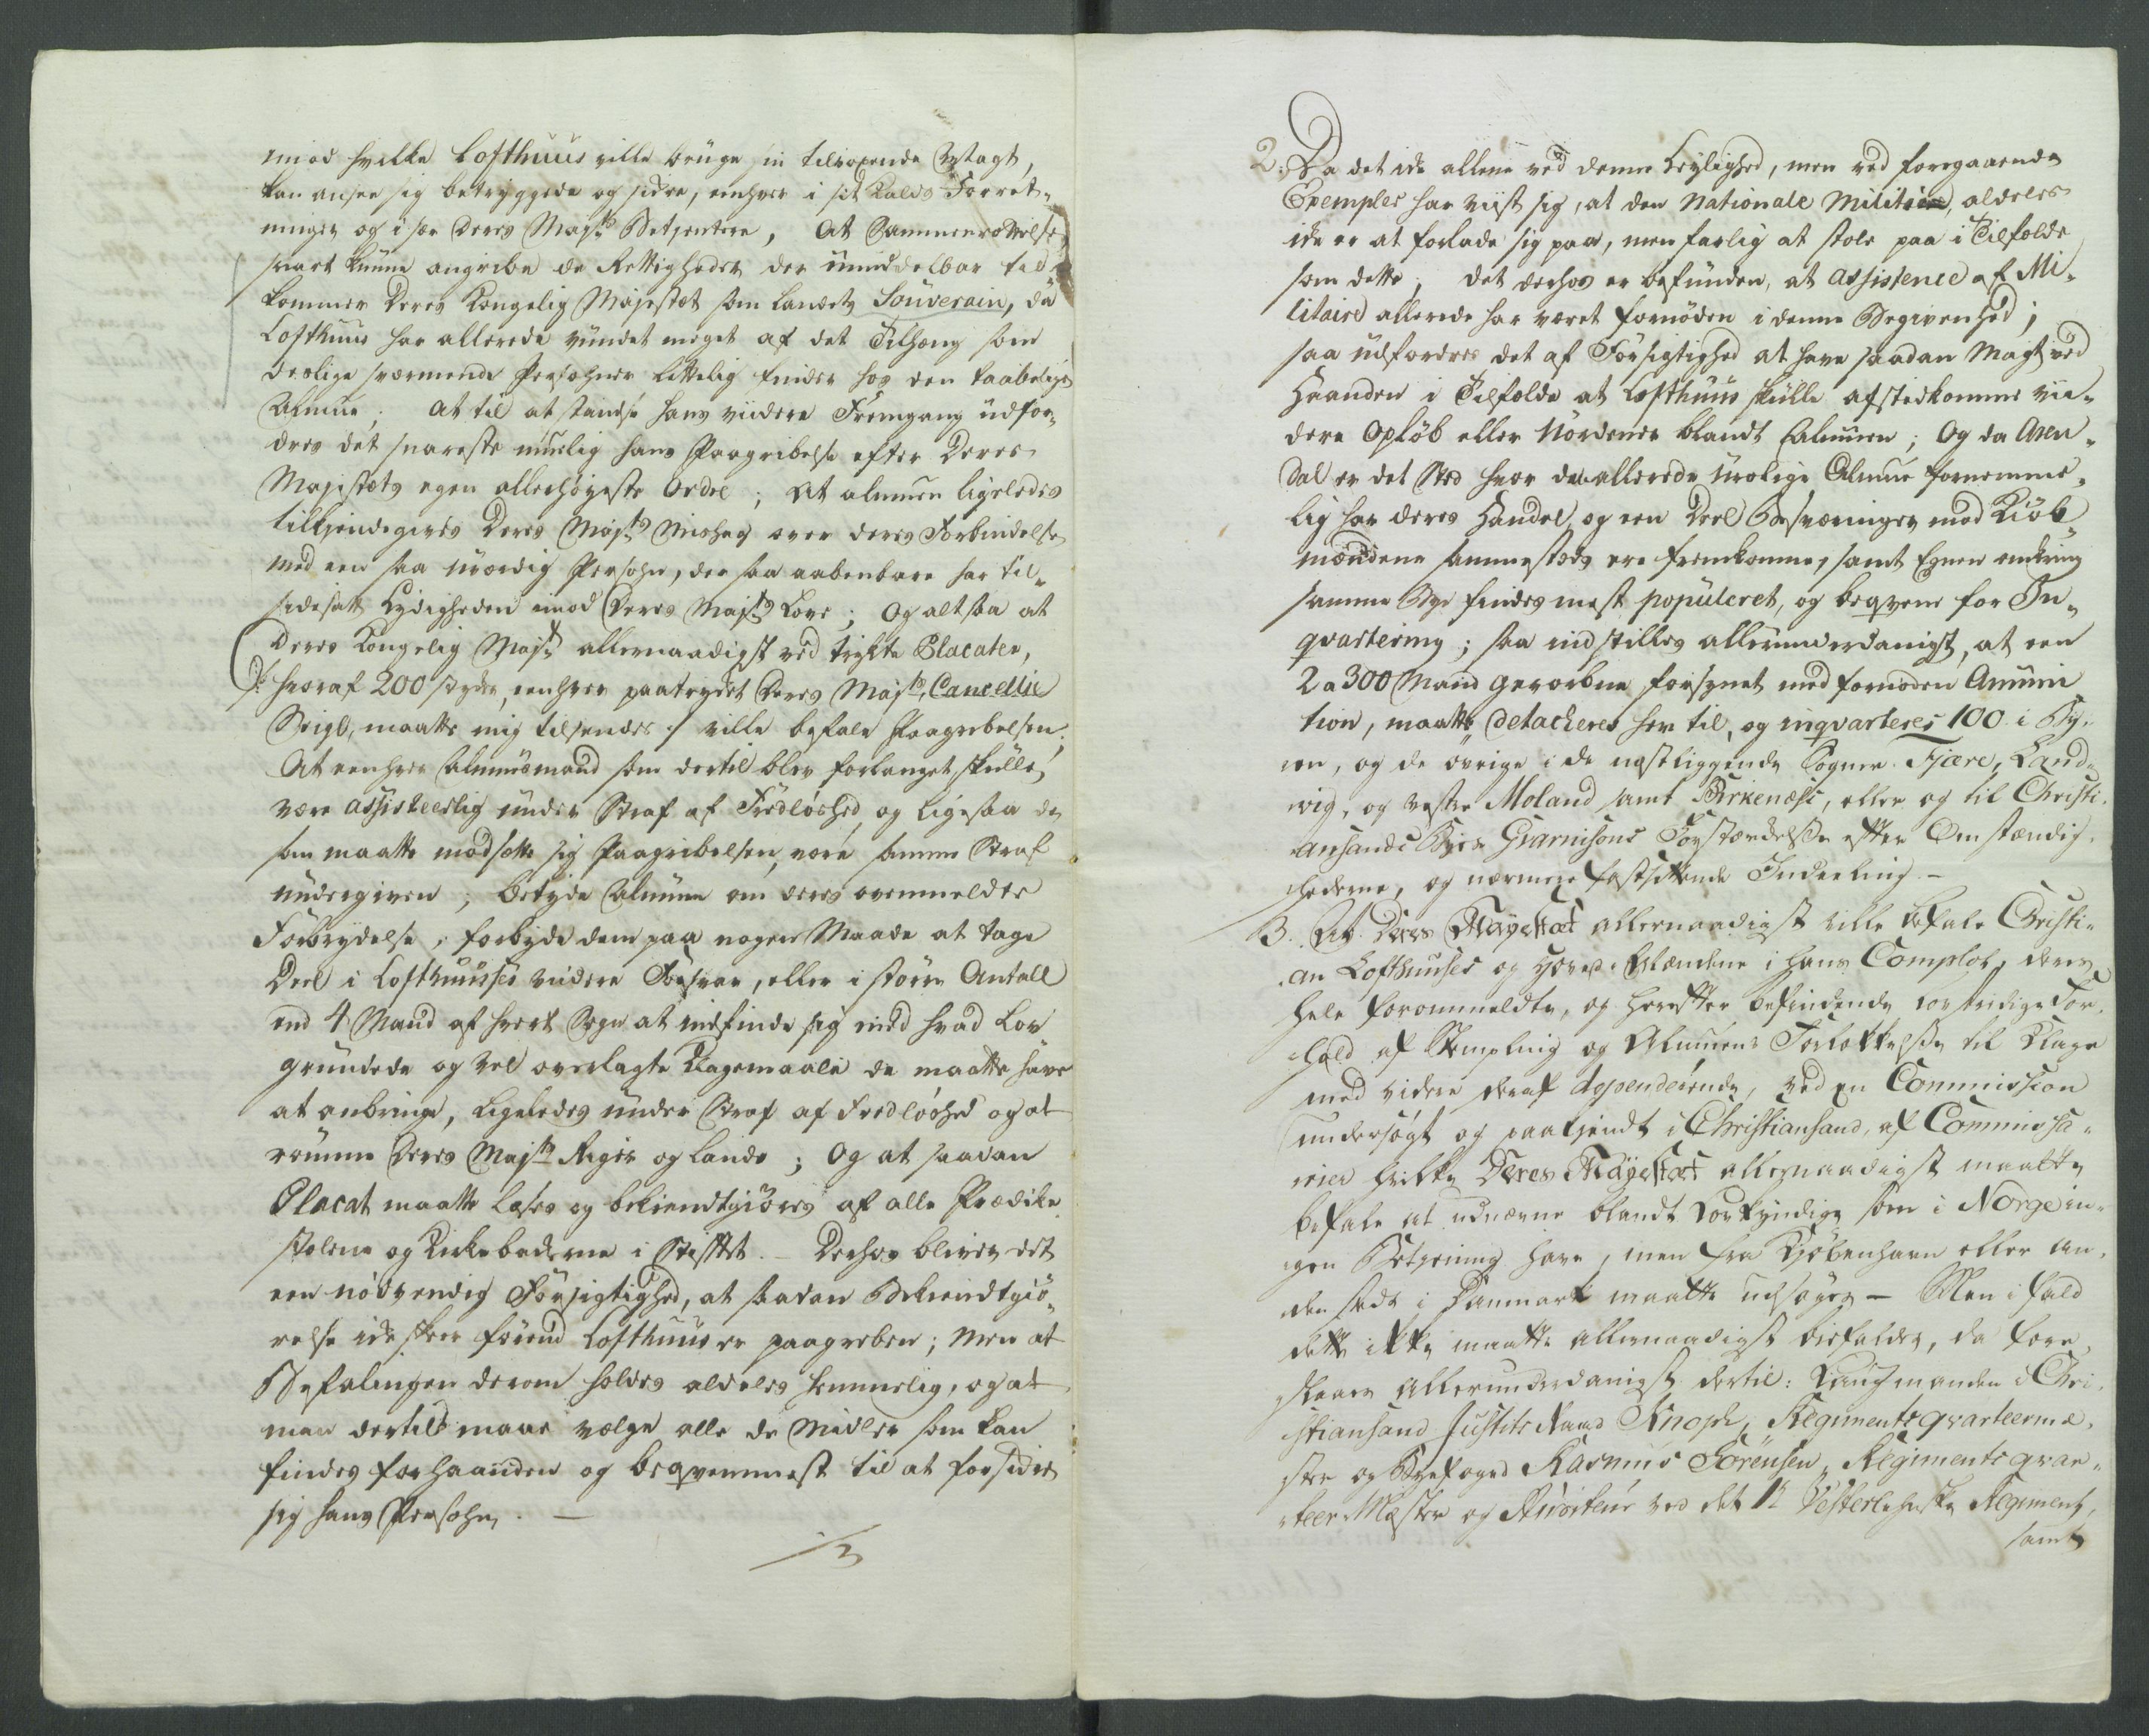 imod hvilke Lofthuus ville bruge sin tilvoxende Magt,
kan ansee sig betryggede og sikre, eenhver i sit Kalds Forret-
ninger og i sær Deres Majts Betjentere, At Sammenrottelse
snart kunne angribe de Rettigheder der umiddelbar til-
kommer Deres Kongelig Majestet som Landets Souverain, da
Lofthuus har allerede vundet meget af det Tilhæng som
deslige sværmende Personer lettelig finder hos den taabelige
Almue; At til at standse hans viidere Fremgang udfor-
dres det snareste muelig hans Paagribelse efter Deres
Majestets egen allerhøyeste Ordre; At almuen ligeledes
tilkjendegives Deres Majts Mishag over deres Forbindelse
med een saa uværdig Persohn, der saa aabenbare har til-
sidesatt Lydigheden imod Deres Majts Love; Og altsaa at
Deres Kongelig Majt allernaadigst ved trykte Placater,
/: hvoraf 200 stykker, eenhver paatrykt Deres Majts Cancellie
Seigl, maatte mig tilsendes :/ ville befale Paagribelsen;
At eenhver Almuesmand som dertil blev forlanget, skulle
være assisteerlig under Straf af Fredløshed, og ligesaa de
som maatte modsætte sig Paagribelsen, være samme Straf
undergiven; betyde Almuen om deres ovenmeldte
Forbrydelse, forbyde dem paa nogen Maade at tage
Deel i Lofthuuses viidere Forsvar, eller i større Antall
end 4 Mand af hvert Sogn at indfinde sig med hvad Lov
grundede og vel overlagte Klagemaale de maatte have
at anbringe, ligeledes under Straf af Fredløshed og at
rømme Deres Majts Riger og Lande; Og at saadan
Placat maatte læses og bekiendtgiøres af alle Prædike
stolene og Kirkebakkerne i Stiftet. – Derhos bliver det
een nødvendig Forsigtighed, at saadan Bekiendtgiø-
relse ikke skeer førend Lofthuus er paagreben; Men at
Befalingen derom holdes aldeles hemmelig, og at
man dertil maae vælge alle de Midler som kan
findes forhaanden og beqvemmest til at forsikre
sig hans Persohn. –
2. Da det ikke allene ved denne Leylighed, men ved foregaaende
Exempler har viist sig, at den Nationale Militie, aldeles
ikke er at forlade sig paa, men farlig at stole paa i Tilfælde
som dette; det derhos er befunden, at assistence af Mi-
litaire allerede har været fornøden i denne Begivenhed;
saa udfordres det af Forsigtighed at have saadan Magt ved
Haanden i Tilfælde at Lofthuus skulle afstedkomme vii-
dere Opløb eller Uordener blandt Almuen; Og da Aren-
dal er det Sted hvor den allerede urolige Almue fornemme-
lig har deres Handel, og een Deel Besværinger mod Kiøb-
mændene sammesteds ere fremkomne, samt Egnen omkring
samme Bye findes mest populeret, og beqvem for In-
qvartering; saa indstilles allerunderdanigst, at een
2 a 300 Mand gevorbne forsynet med fornøden Amuni
tion, maatte detacheres her til, og inqvarteres 100 i By-
en, og de øvrige i de næstliggende Sogner Fjære, Land-
vig, og vestre Moland samt Birkenæs, eller og til Christi-
ansands Byes Guarnisons Forstærkelse efter Omstændig-
hederne, og nærmere fastsættende Inddeeling. –
3. At Deres Mayestæt allernaadigst ville befale Christi-
an Lofthuuses og Hoved-Mændene i hans Complot, deres
hele forommeldte, og herefter befindende lovstridige For-
hold af Rempling og Almuens Forlokkelse til Klage
med videre deraf dependerende, ved en Commission
undersøgt og paakjendt i Christiansand, af Commissa-
rier hvilke Deres Mayestæt allernaadigst maatte
befale at udnævne blandt Lovkyndige som i Norge in-
gen Betjening have, men fra Kjøbenhavn eller an-
den steds i Danmark maatte udsøges – Men i fald
dette ikke maatte allernaadigst biefaldes, da fore-
slaaes allerunderdanigst dertil: Laugmanden i Chri-
stiansand Justits Raad Knoph, Regimentsqvarteerme-
ster og Byefoged Rasmus Sørensen, Regimentsqvar-
teer-Mester og Auditeur ved det 1te Vesterlehnske Regiment,
samt